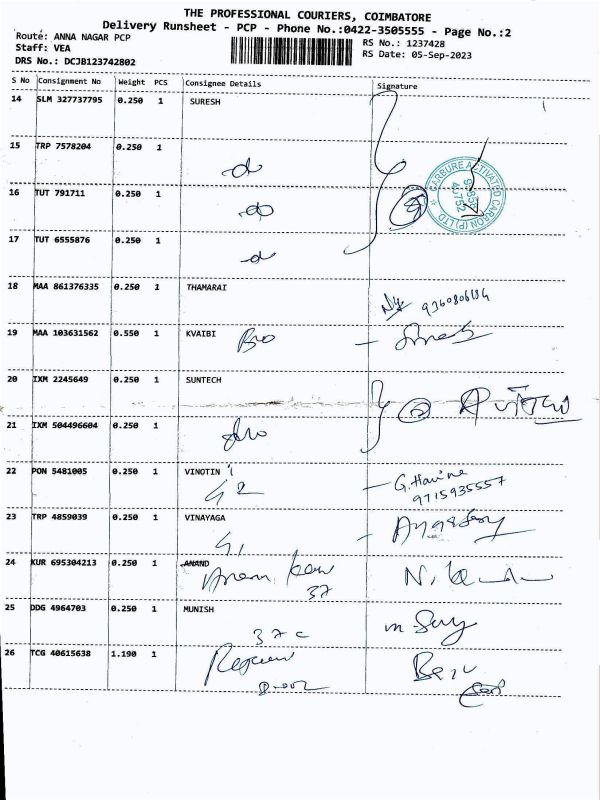 THE PROFESSIONAL COURIERS, COIMBATORE
Delivery Runsheet - PCP - Phone No.:0422-3505555 - Page No.:2
Route: ANNA NAGAR PCP
Staff: VEA
DRS No.: DCJB123742802
RS No.: 1237428
RS Date: 05-Sep-2023
S No Consignment No Weight PCS Consignee Details Signature
14 SLM 327737795 0.250 1 SURESH
15 TRP 7578204 0.250 1
CARBURE ACTIVATED CARBON (P) LTD
16 TUT 791711 0.250 1
17 TUT 6555876 0.250 1
18 MAA 861376335 0.250 1 THAMARAI
19 MAA 103631562 0.550 1 KVAIBI
20 IXM 2245649 0.250 1 SUNTECH
21 IXM 504496604 0.250 1
22 PON 5481005 0.250 1 VINOTIN
G. Harine
9715935557
23 TRP 4859039 0.250 1 VINAYAGA
24 KUR 695304213 0.250 1 ANAND
37
25 DDG 4964703 0.250 1 MUNISH
37c
26 TCG 40615638 1.190 1